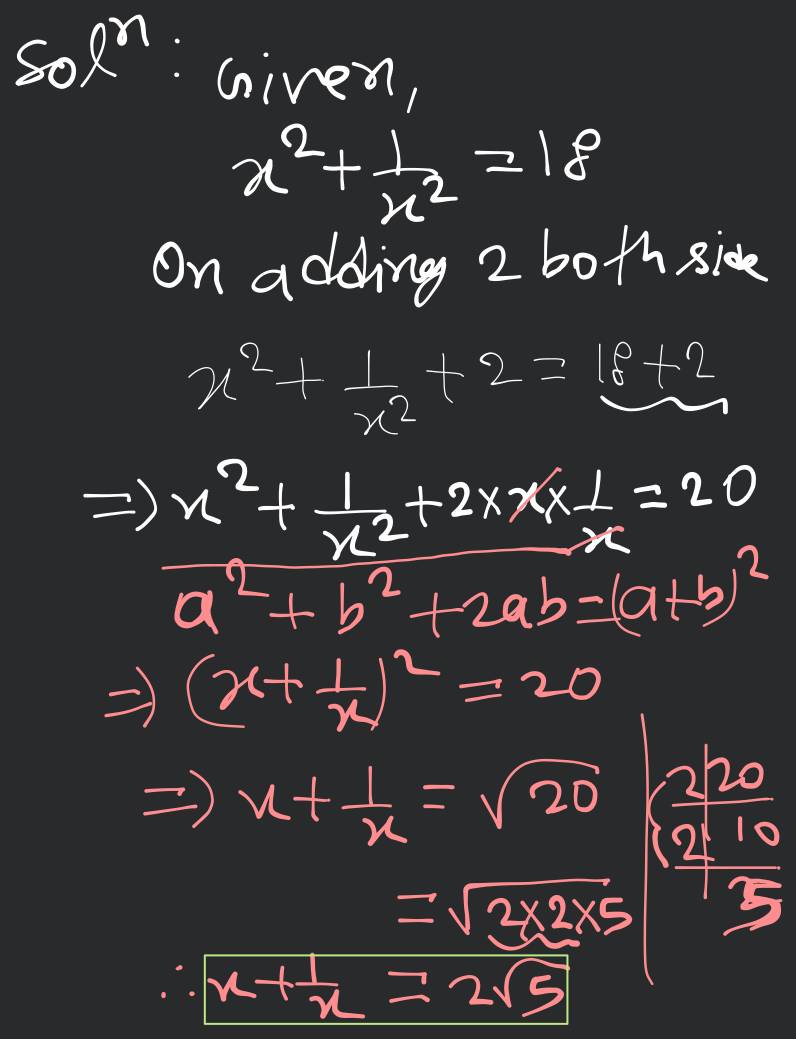 Solⁿ: Given,
x² + 1/x² = 18
On adding 2 both side
x² + 1/x² + 2 = 18+2
⇒ x² + 1/x² + 2 × x × 1/x = 20
a² + b² + 2ab = (a+b)²
⇒ (x + 1/x)² = 20
⇒ x + 1/x = √20
= √2×2×5
∴ x + 1/x = 2√5
2 | 20
2 | 10
5